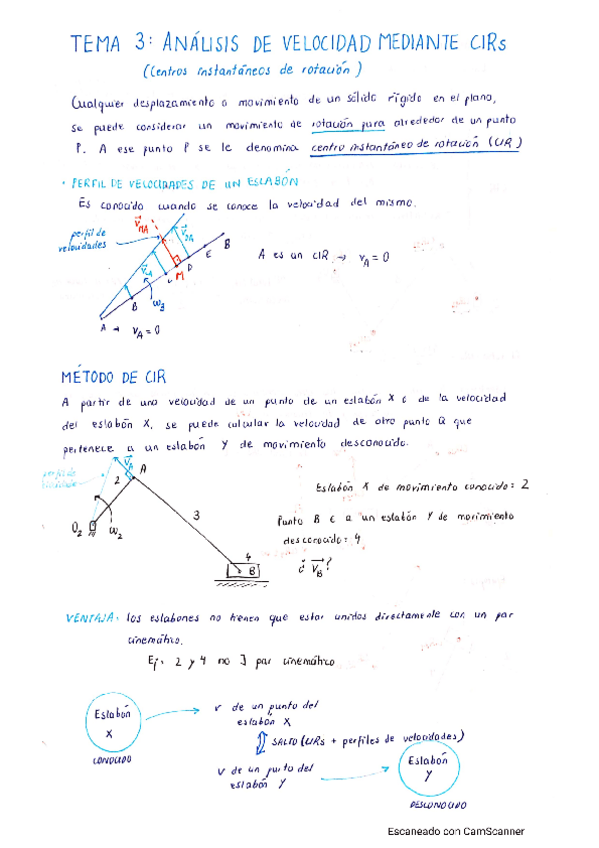 TEMA 3: ANÁLISIS DE VELOCIDAD MEDIANTE CIRs
(Centros instantáneos de rotación)
Cualquier desplazamiento o movimiento de un sólido rígido en el plano,
se puede considerar un movimiento de rotación pura alrededor de un punto
P. A ese punto P se le denomina centro instantáneo de rotación (CIR)
· PERFIL DE VELOCIDADES DE UN ESLABÓN
Es conocido cuando se conoce la velocidad del mismo.
perfil de
velocidades
M
D
E
B
B
ω3
A → vA = 0
A es un CIR → vA = 0
MÉTODO DE CIR
A partir de una velocidad de un punto de un eslabón X o de la velocidad
del eslabón X, se puede calcular la velocidad de otro punto Q que
pertenece a un eslabón Y de movimiento desconocido.
VA
A
2
O2
ω2
3
4
B
Eslabón X de movimiento conocido: 2
Punto B ∈ a un eslabón Y de movimiento
desconocido: 4
¿ VB?
VENTAJA: los eslabones no tienen que estar unidos directamente con un par
cinemático.
Ej: 2 y 4 no ∃ par cinemático
Eslabón
X
CONOCIDO
v de un punto del
eslabón X
SALTO (CIRs + perfiles de velocidades)
v de un punto del
eslabón Y
Eslabón
Y
DESCONOCIDO
Escaneado con CamScanner